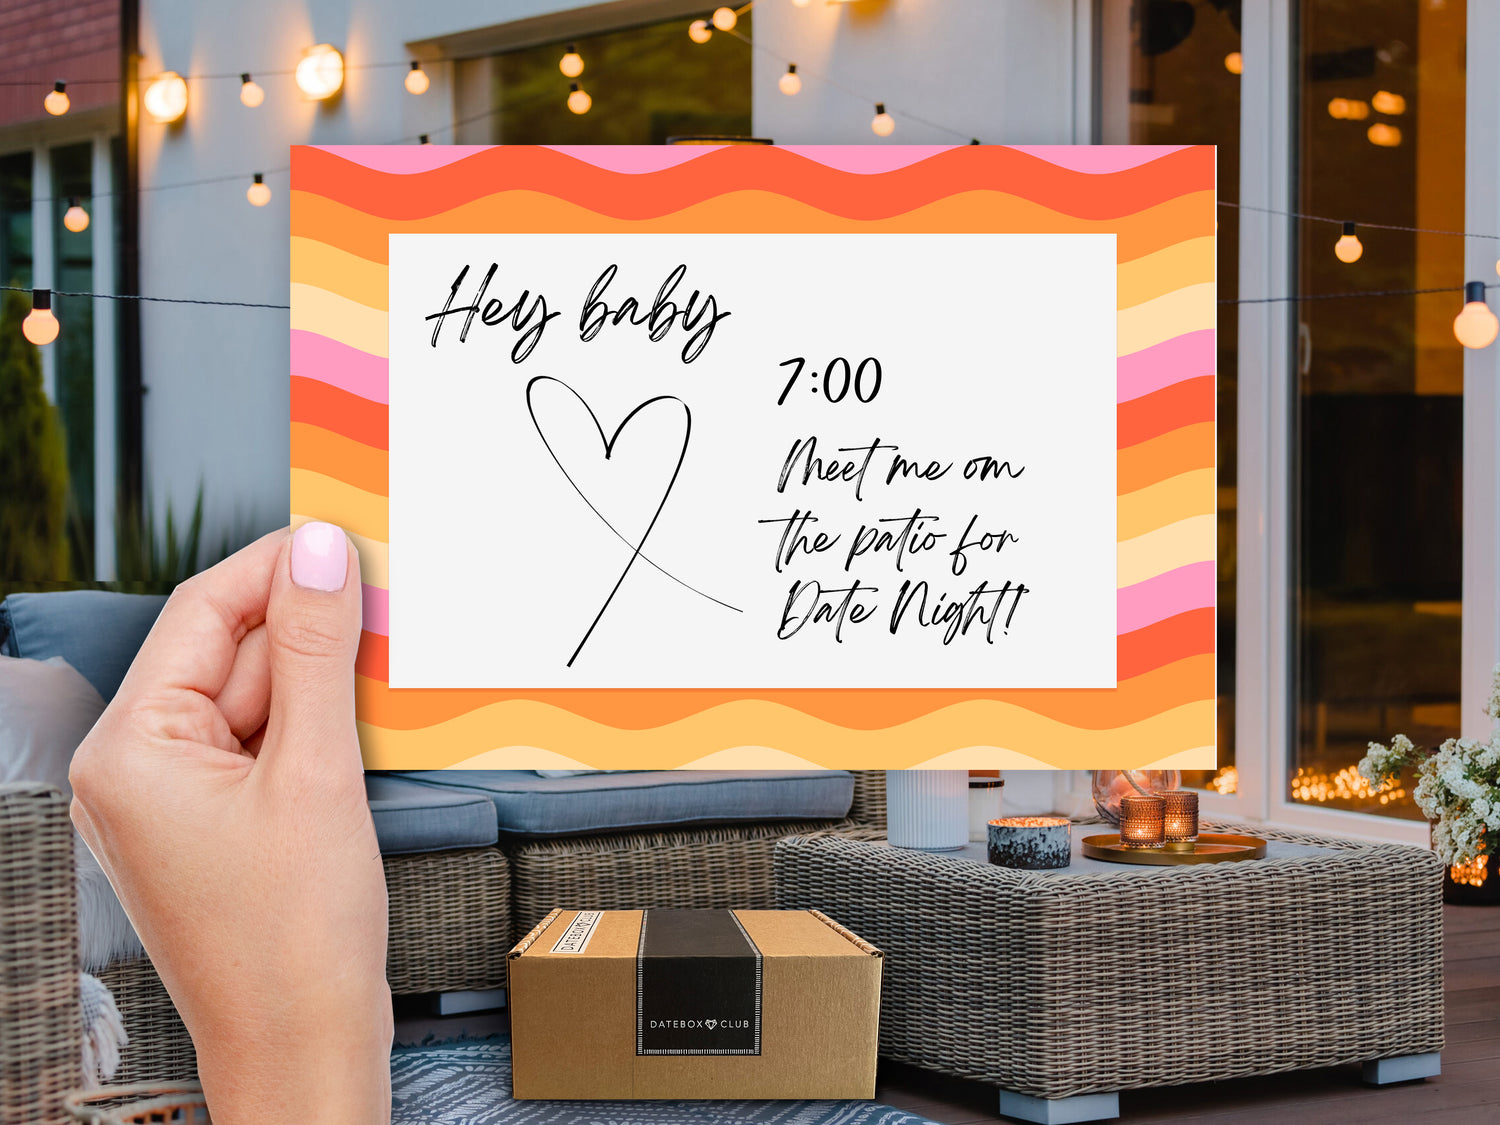 Hey baby
7:00
Meet me on
the patio for
Date Night!
DATEBOX CLUB
DATEBOX CLUB